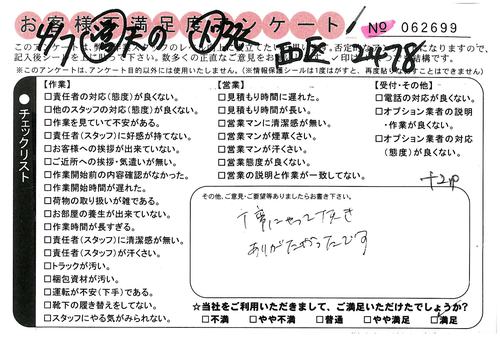 お客様満足度アンケート
No 062699
【作業】
□責任者の対応(態度)が良くない。
□他のスタッフの対応(態度)が良くない。
□作業を見ていて不安がある。
□責任者(スタッフ)に好感が持てない。
□お客様への挨拶が出来ていない。
□ご近所への挨拶・気遣いが無い。
□作業開始前の内容確認がなかった。
□作業開始時間が遅れた。
□荷物の取り扱いが雑である。
□お部屋の養生が出来ていない。
□作業時間が長すぎる。
□責任者(スタッフ)に清潔感が無い。
□責任者(スタッフ)が汗くさい。
□トラックが汚い。
□梱包資材が汚い。
□運転が不安(下手)である。
□靴下の履き替えをしてない。
□スタッフにやる気がみられない。
【営業】
□見積もり時間に遅れた。
□見積もり時間が長い。
□営業マンに清潔感が無い。
□営業マンが煙草くさい。
□営業マンが汗くさい。
□営業態度が良くない。
□営業の説明と作業が一致してない。
【受付・その他】
□電話の対応が良くない。
□オプション業者の説明
・作業が良くない。
□オプション業者の対応
(態度)が良くない。
その他、ご意見・ご要望等ありましたらお書き下さい。
丁寧にやって頂き
ありがたかったです
☆当社をご利用いただきまして、ご満足いただけたでしょうか?
□不満 □やや不満 □普通 □やや満足 □満足
●チェックリスト